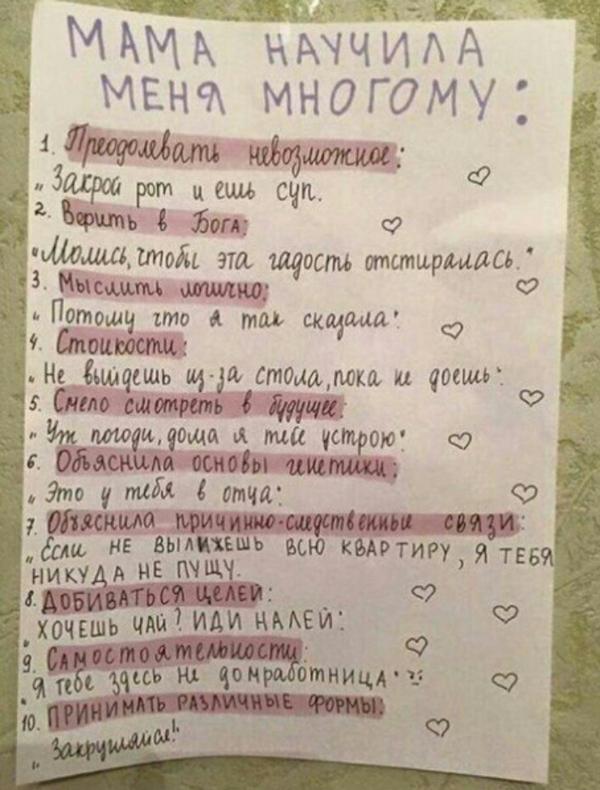 МАМА НАУЧИЛА
МЕНЯ МНОГОМУ:
1. Преодолевать невозможное:
„Закрой рот и ешь суп.
2. Верить в Бога:
„Молись, чтобы эта гадость отстиралась."
3. Мыслить логично:
„Потому что я так сказала"
4. Стойкости:
„Не выйдешь из-за стола, пока не доешь"
5. Смело смотреть в будущее:
„Уж погоди, дома я тебе устрою"
6. Объяснила основы генетики:
„Это у тебя в отца"
7. Объяснила причинно-следственные связи:
„Если не вылижешь всю квартиру, я тебя
никуда не пущу.
8. Добиваться целей:
„Хочешь чай? Иди налей"
9. Самостоятельности:
„Я тебе здесь не домработница"
10. Принимать различные формы:
„Закругляйся!"